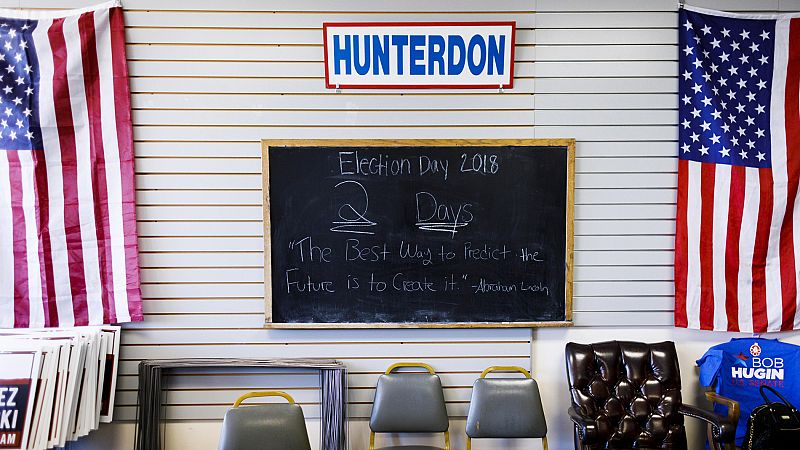 HUNTERDON
Election Day 2018
2 Days
"The Best Way to Predict the
Future is to Create it." -Abraham Lincoln
BOB
HUGIN
U.S. SENATE
EZ
SKI
AM